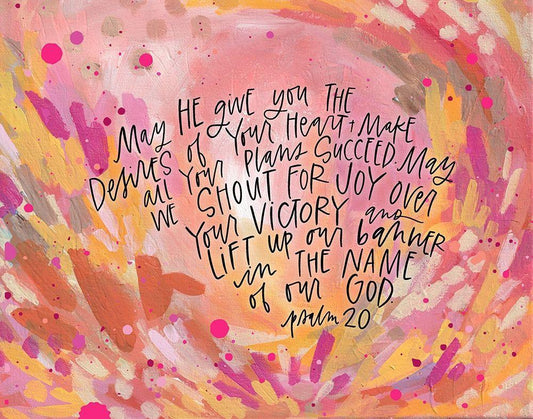 May HE give you THE
DESIRES of Your Heart + Make
all Your Plans SUCCEED. May
WE SHOUT FOR JOY Over
Your VICTORY and
LIFT up our banner
in THE NAME
of our GOD.
psalm 20